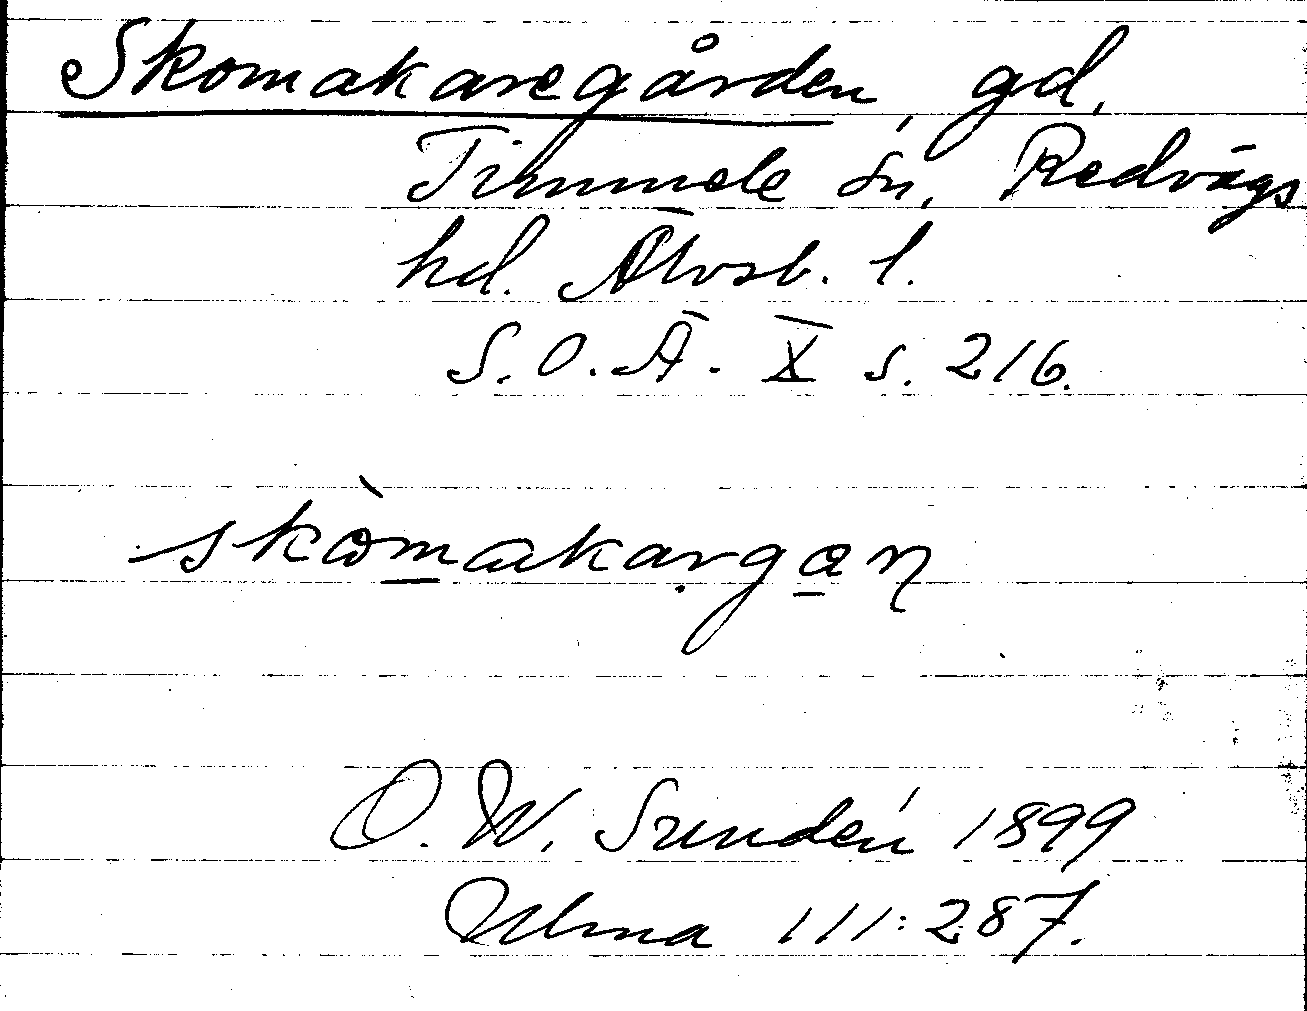 Skomakaregården, gd,
Timmele sn, Redvägs
hd. Älvsb. l.
S.O.Ä. X s. 216.
skòmakargan
D. W. Sundén 1899
Ulma 111:287.